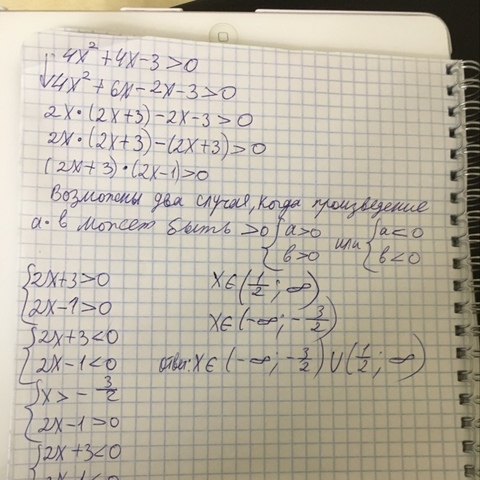 4x² + 4x - 3 > 0
4x² + 6x - 2x - 3 > 0
2x · (2x + 3) - 2x - 3 > 0
2x · (2x + 3) - (2x + 3) > 0
(2x + 3) · (2x - 1) > 0
Возможны два случая, когда произведение
а · в может быть > 0 { а > 0 или { а < 0
в > 0 в < 0
{ 2x + 3 > 0
2x - 1 > 0
{ 2x + 3 < 0
2x - 1 < 0
{ x > - 3/2
2x - 1 > 0
{ 2x + 3 < 0
2x - 1 < 0
x ∈ (1/2; ∞)
x ∈ (-∞; - 3/2)
ответ: x ∈ (-∞; - 3/2) ∪ (1/2; ∞)